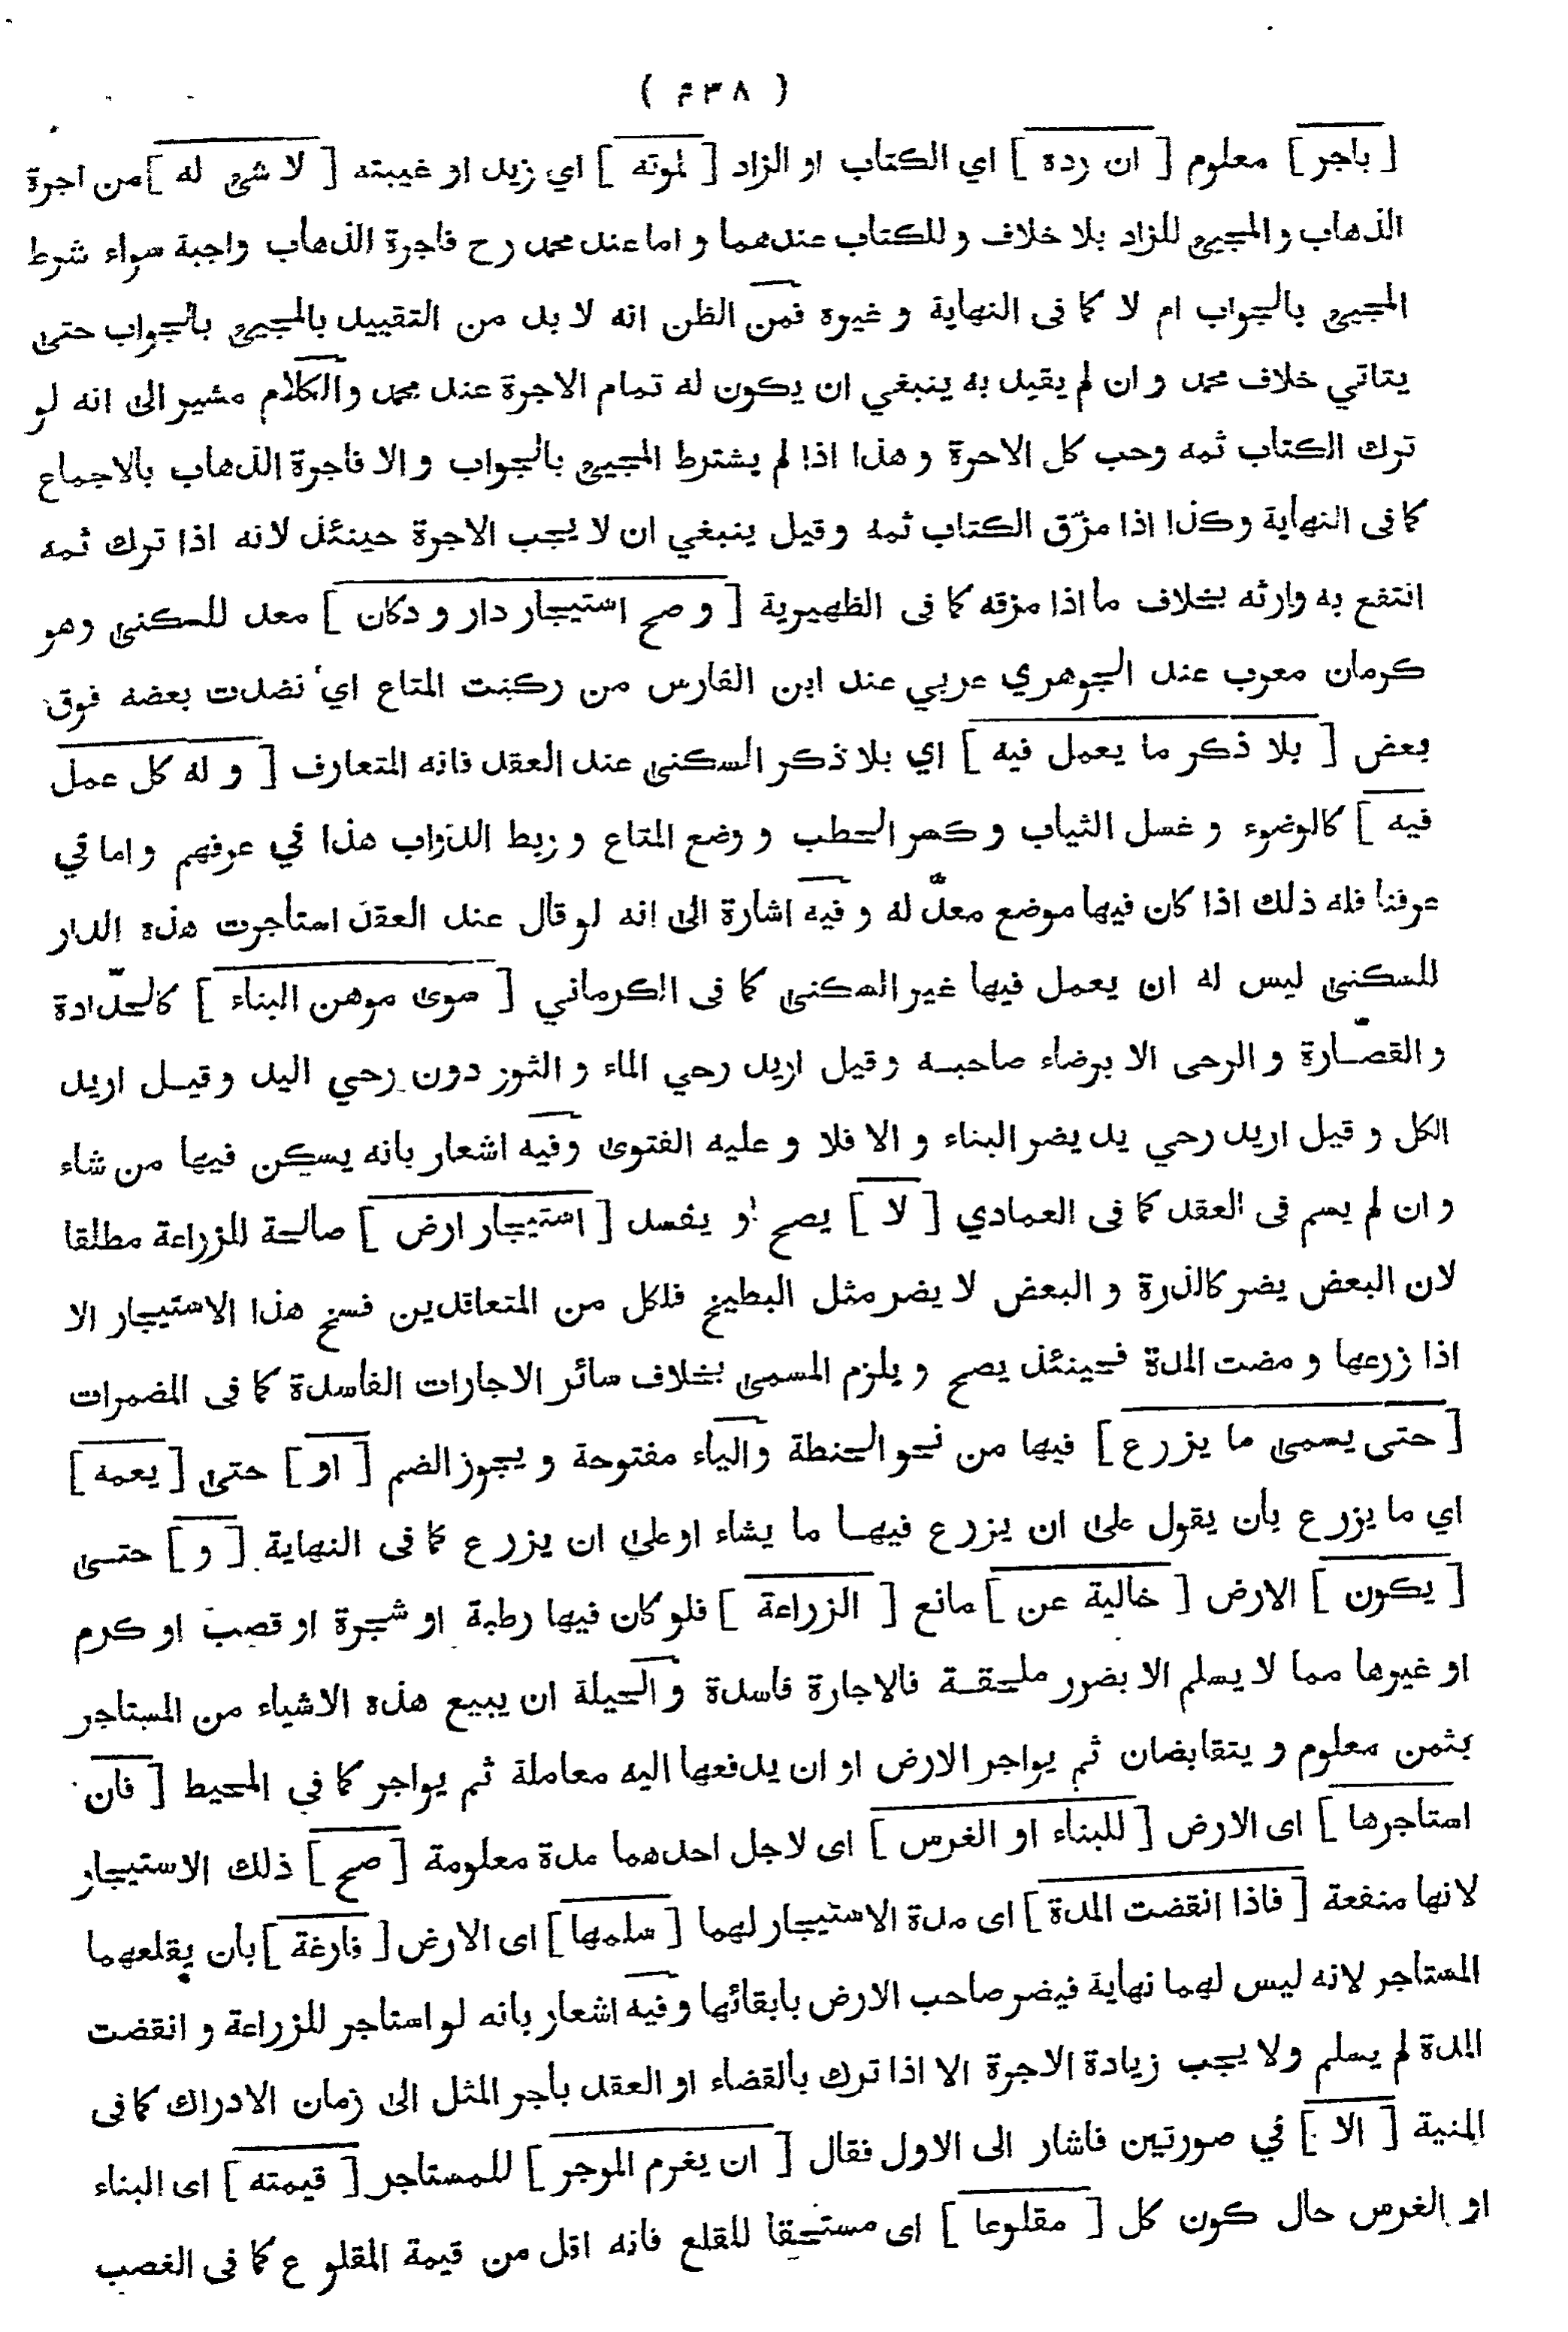 ( ۴۳۸ )
[ باجر ] معلوم [ ان رده ] اي الكتاب او الزاد [ لموته ] اي زيد او غيبته [ لا شيء له ] من اجرة
الذهاب و المجيء للزاد بلا خلاف و للكتاب عندهما و اما عند محمد رح فاجرة الذهاب واجبة سواء شرط
المجيء بالجواب ام لا كما فى النهاية و غيره فمن الظن انه لا بد من التقييد بالمجيء بالجواب حتى
يتاتي خلاف محمد و ان لم يقيد به ينبغي ان يكون له تمام الاجرة عند محمد و الكلام مشير الى انه لو
ترك الكتاب ثمه وجب كل الاجرة و هذا اذا لم يشترط المجيء بالجواب و الا فاجرة الذهاب بالاجماع
كما فى النهاية وكذا اذا مزّق الكتاب ثمه و قيل ينبغي ان لا يجب الاجرة حينئذ لانه اذا ترك ثمه
انتفع به وارثه بخلاف ما اذا مزقه كما فى الظهيرية [ و صح استيجار دار و دكان ] معد للسكنى وهو
كرمان معرب عند الجوهري عربي عند ابن الفارس من ركبت المتاع اي نضدت بعضه فوق
بعض [ بلا ذكر ما يعمل فيه ] اي بلا ذكر السكنى عند العقد فانه المتعارف [ و له كل عمل
فيه ] كالوضوء و غسل الثياب و كسر الحطب و وضع المتاع و ربط الدواب هذا في عرفهم و اما في
عرفنا فله ذلك اذا كان فيها موضع معدّ له و فيه اشارة الى انه لو قال عند العقد استاجرت هذه الدار
للسكنى ليس له ان يعمل فيها غير السكنى كما فى الكرماني [ سوى موهن البناء ] كالحدّادة
و القصّارة و الرحى الا برضاء صاحبه و قيل اريد رحي الماء و الثور دون رحي اليد و قيل اريد
الكل و قيل اريد رحي يد يضر البناء و الا فلا و عليه الفتوى و فيه اشعار بانه يسكن فيها من شاء
و ان لم يسم فى العقد كما فى العمادي [ لا ] يصح او يفسد [ استيجار ارض ] صالحة للزراعة مطلقا
لان البعض يضر كالذرة و البعض لا يضر مثل البطيخ فلكل من المتعاقدين فسخ هذا الاستيجار الا
اذا زرعها و مضت المدة فحينئذ يصح و يلزم المسمى بخلاف سائر الاجارات الفاسدة كما فى المضمرات
[ حتى يسمى ما يزرع ] فيها من نحو الحنطة و الياء مفتوحة و يجوز الضم [ او ] حتى [ يعمه ]
اي ما يزرع بأن يقول على ان يزرع فيها ما يشاء او على ان يزرع كما فى النهاية [ و ] حتى
[ يكون ] الارض [ خالية عن ] مانع [ الزراعة ] فلو كان فيها رطبة او شجرة او قصب او كرم
او غيرها مما لا يسلم الا بضرر ملحقة فالاجارة فاسدة و الحيلة ان يبيع هذه الاشياء من المستاجر
بثمن معلوم و يتقابضان ثم يواجر الارض او ان يدفعها اليه معاملة ثم يواجر كما في المحيط [ فان
استاجرها ] اى الارض [ للبناء او الغرس ] اى لاجل احدهما مدة معلومة [ صح ] ذلك الاستيجار
لانها منفعة [ فاذا انقضت المدة ] اى مدة الاستيجار لهما [ سلمها ] اى الارض [ فارغة ] بأن يقلعهما
المستاجر لانه ليس لهما نهاية فيضر صاحب الارض بابقائها و فيه اشعار بانه لو استاجر للزراعة و انقضت
المدة لم يسلم ولا يجب زيادة الاجرة الا اذا ترك بالقضاء او العقد باجر المثل الى زمان الادراك كما فى
المنية [ الا ] في صورتين فاشار الى الاول فقال [ ان يغرم الموجر ] للمستاجر [ قيمته ] اى البناء
او الغرس حال كون كل [ مقلوعا ] اى مستحقا للقلع فانه اقل من قيمة المقلوع كما فى الغصب